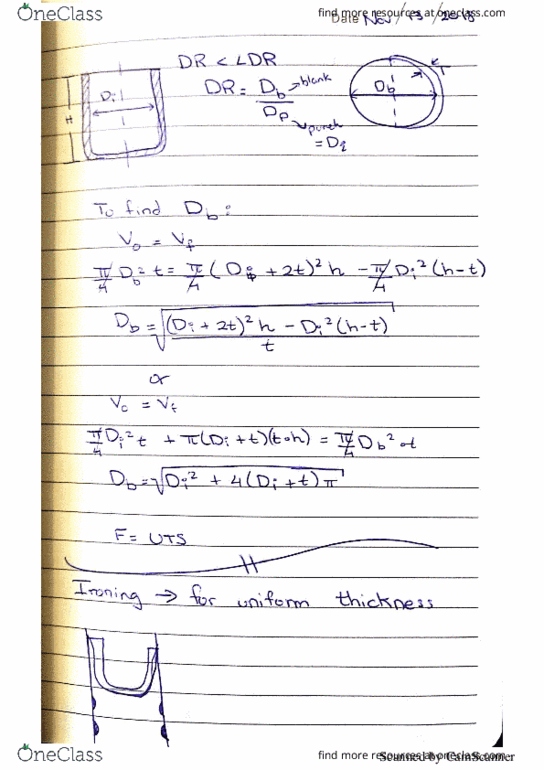 OneClass
find more resources at oneclass.com
Date Nov / 13 / 2018
DR < LDR
DR = Db → blank
Dp → punch
= Di
H
Di
Db
T
To find Db:
Vo = Vf
π/4 Db² t = π/4 (Di + 2t)² h - π/4 Di² (h-t)
Db = √((Di + 2t)² h - Di² (h-t) / t)
or
Vo = Vf
π/4 Di² t + π(Di + t)(t∘h) = π/4 Db² ∘t
Db = √(Di² + 4(Di + t)π)
F = UTS
Ironing → for uniform thickness
OneClass
find more resources at oneclass.com
Scanned by CamScanner